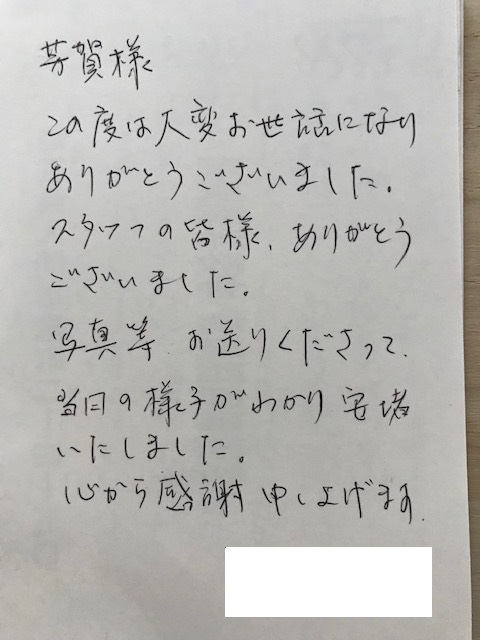 芳賀様
この度は大変お世話になり
ありがとうございました。
スタッフの皆様、ありがとう
ございました。
写真等、お送りくださって、
当日の様子がわかり安堵
いたしました。
心から感謝申し上げます。